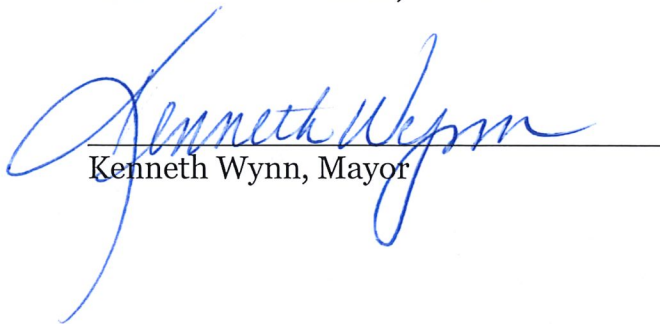 Kenneth Wynn
Kenneth Wynn, Mayor